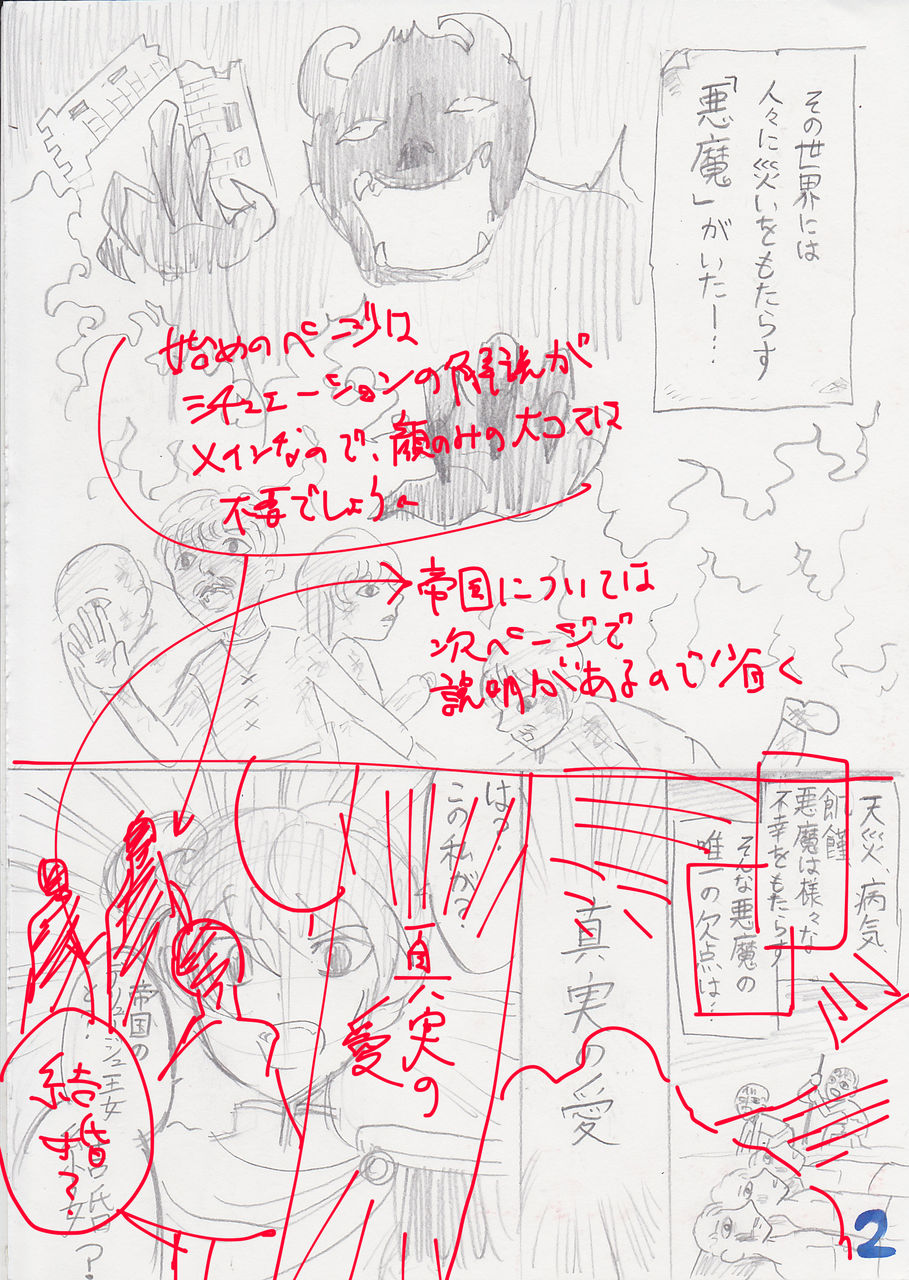 その世界には
人々に災いをもたらす
「悪魔」がいた―…
始めのページは
シチュエーションの解説が
メインなので、顔のみの大コマは
不要でしょう。
帝国については
次ページで
説明があるので省く
天災、病気、
飢饉
悪魔は様々な
不幸をもたらす
そんな悪魔の
唯一の欠点は…
真実の愛
真実の
愛
は?
この私が?
帝国の
王女
と
結婚?
結婚?
2